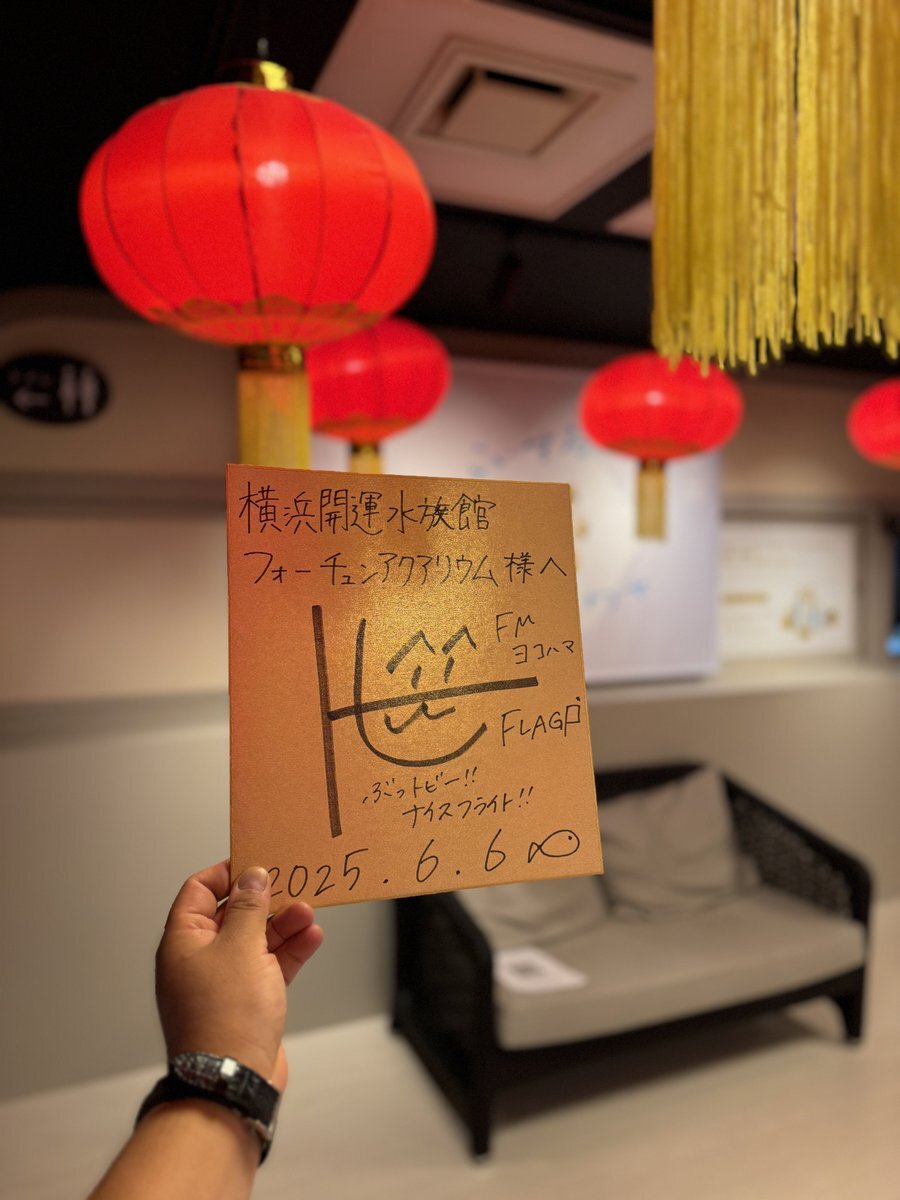 横浜開運水族館
フォーチュンアクアリウム様へ
FM
ヨコハマ
FLAG
ぶっトビー!!
ナイスフライト!!
2025.6.6